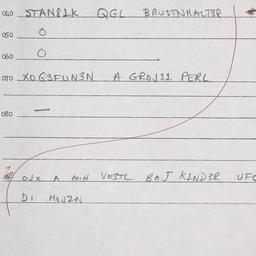 040 STAN81K QGL BRUSTNHALT3R
050 O
060 O
070 XOQ3FUN3N A GROJS1 PERL
080 —
OJX A MIN VESTL BAJ K1ND3R
DI HOJZN